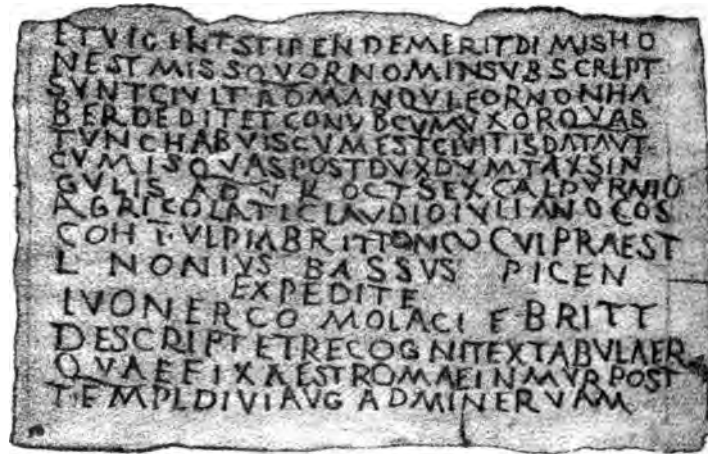 ETVIGINTSTIPENDEMERITDIMISHO
NESTMISSQVORNOMINSVBSCRIPT
SVNTCIVITROMANQVIEORNONHA
BERDEDITETCONVBCVMVXORQVAS
TVNCHABVISCVMESTCIVITISDATAVT
CVMISQVASPOSTDVXDVMTAXSIN
GVLIS A D V K OCT SEX CALPVRNIO
AGRICOLATICLAVDIOIVLIANOCOS
COH I·VLPIABRITTON∞ CVIPRAEST
L NONIVS BASSVS PICEN
EXPEDITE
IVONERCO MOLACI F BRITT
DESCRIPTETRECOGNITEXTABVLAER
QVAEFIXAESTROMAEINMVRPOST
TEMPLDIVIAVG ADMINERVAM